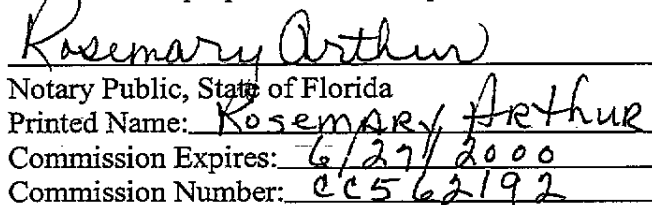 Rosemary Arthur
Notary Public, State of Florida
Printed Name: Rosemary Arthur
Commission Expires: 6/27/2000
Commission Number: CC562192